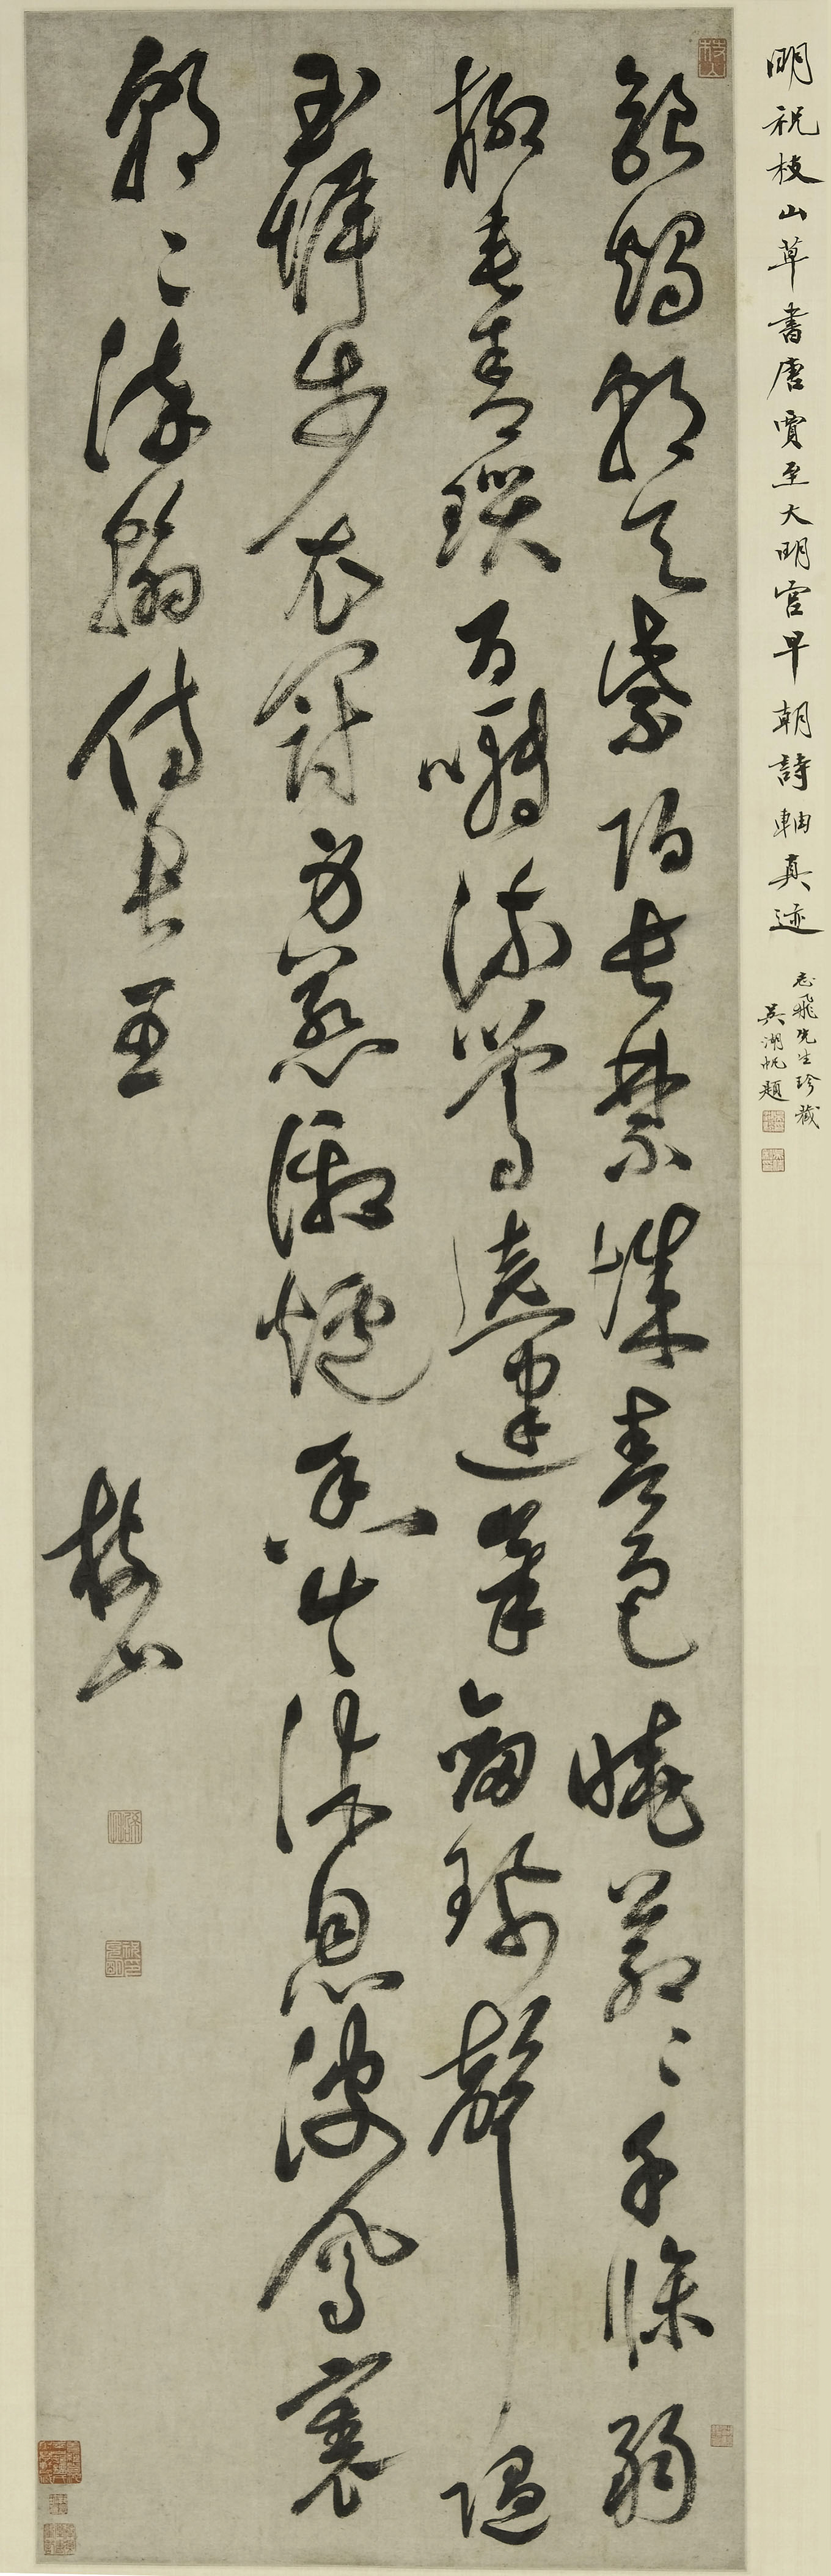 明祝枝山草書唐賈至大明宮早朝詩軸真迹
飛先生珍藏
吳湖帆題
銀燭朝天紫陌長禁城春色曉蒼〻千條弱
柳垂青瑣百囀流鶯遶建章劍珮聲隨
玉墀步衣冠身惹御爐香共沐恩波鳳裏
朝〻染翰侍君王
枝山